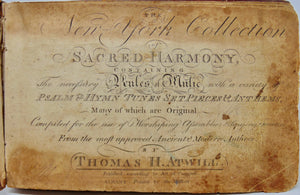 THE
New-York Collection
of
SACRED HARMONY,
CONTAINING
The necessary Rules of Music with a variety of
PSALM & HYMN TUNES SET PIECES & ANTHEMS
Many of which are Original
Compiled for the use of Worshiping Assemblies
From the most approved Ancient & Modern Authors
BY
THOMAS H. ATWILL.
Published according to Act of Congress
ALBANY